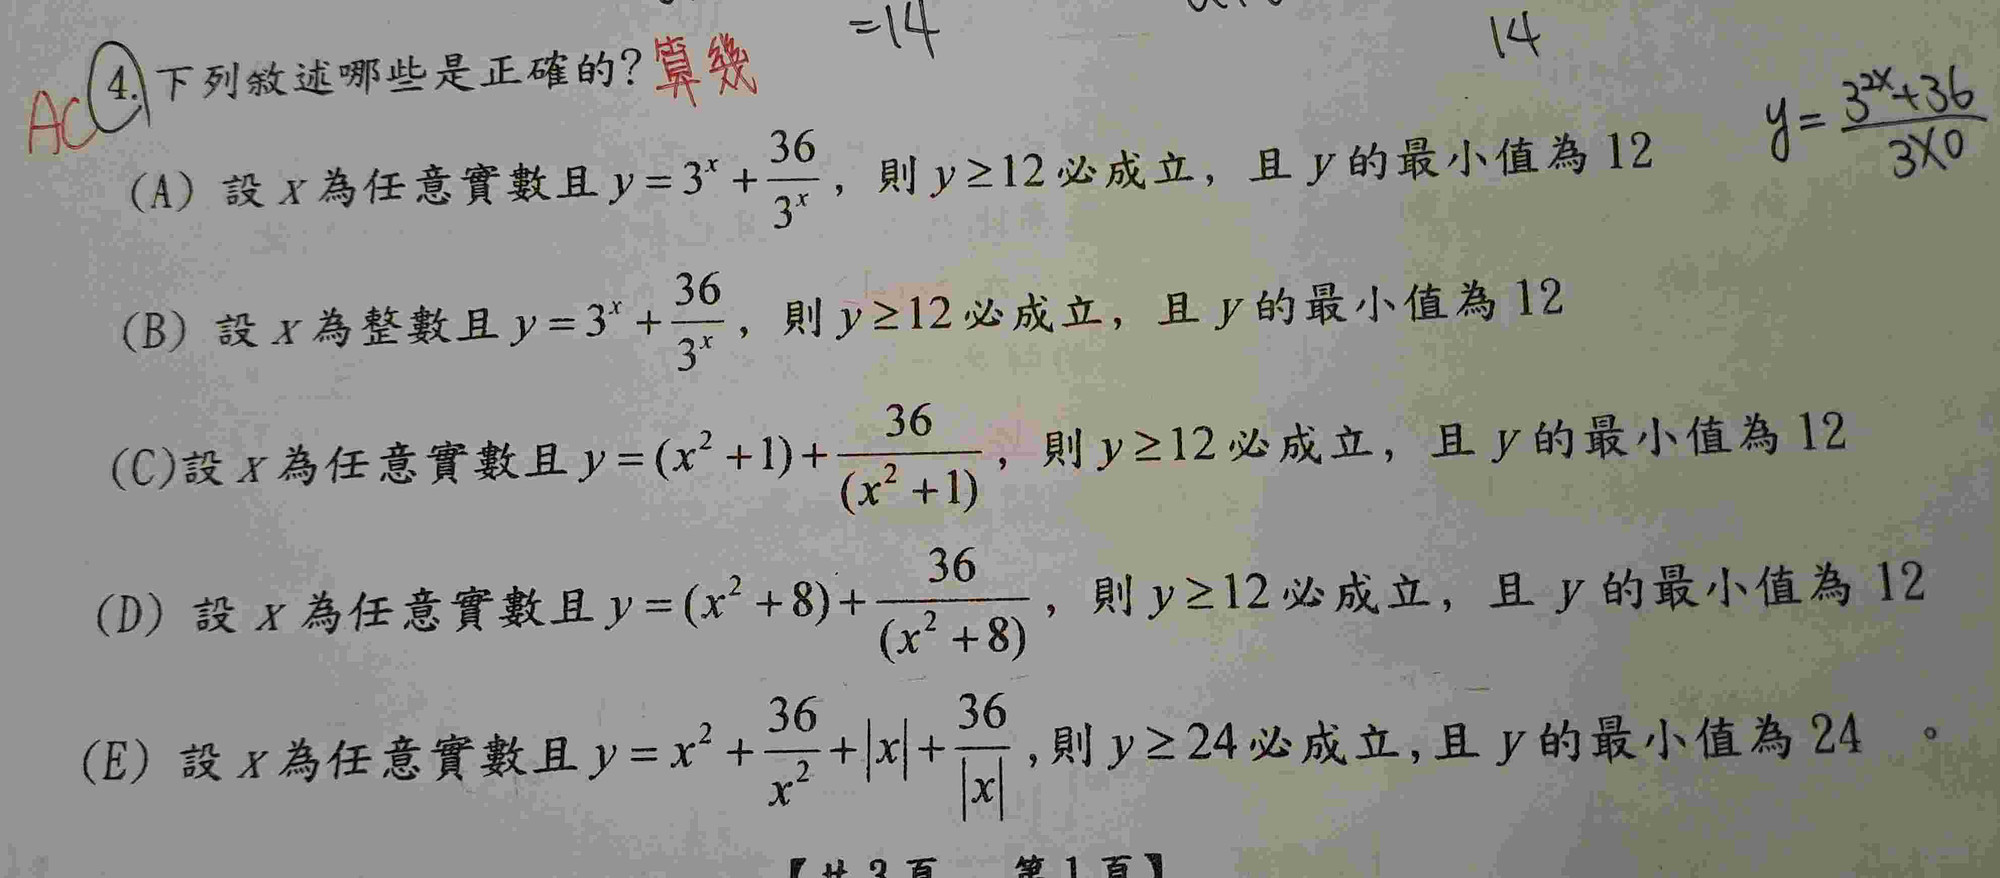 =14
14
AC 4. 下列敘述哪些是正確的? 算幾
y = \frac{3^{2x}+36}{3×0}
(A) 設 x 為任意實數且 y = 3^x + \frac{36}{3^x}，則 y ≥ 12 必成立，且 y 的最小值為 12
(B) 設 x 為整數且 y = 3^x + \frac{36}{3^x}，則 y ≥ 12 必成立，且 y 的最小值為 12
(C) 設 x 為任意實數且 y = (x^2 + 1) + \frac{36}{(x^2 + 1)}，則 y ≥ 12 必成立，且 y 的最小值為 12
(D) 設 x 為任意實數且 y = (x^2 + 8) + \frac{36}{(x^2 + 8)}，則 y ≥ 12 必成立，且 y 的最小值為 12
(E) 設 x 為任意實數且 y = x^2 + \frac{36}{x^2} + |x| + \frac{36}{|x|},則 y ≥ 24 必成立,且 y 的最小值為 24 。
【共 3 頁 第 1 頁】